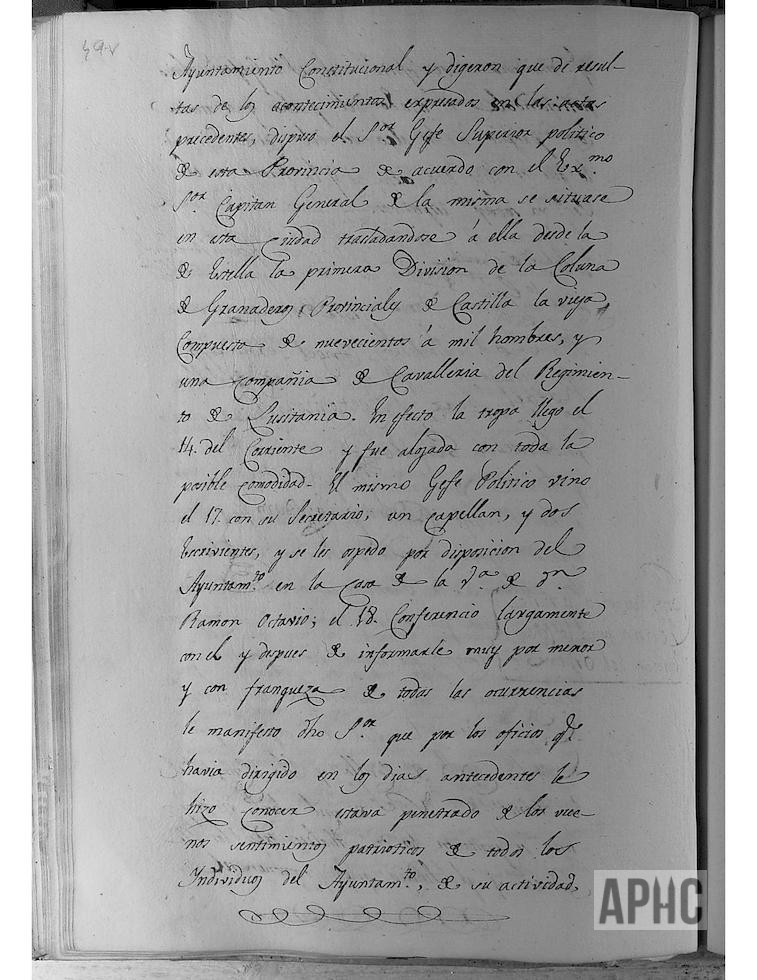 49v
Ayuntamiento Constitucional y digeron que de resul-
tas de los acontecimientos expresados en las actas
precedentes, dispuso el S.or Gefe Superior politico
de esta Provincia de acuerdo con el Ex.mo
S.or Capitan General de la misma se situase
en esta Ciudad trasladandose á ella desde la
de Estella la primera Division de la Coluna
de Granaderos Provinciales de Castilla la vieja,
Compuesta de nuevecientos á mil hombres, y
una compañia de Cavalleria del Regimien-
to de Lusitania. En efecto la tropa llego el
14. del Corriente y fue alojada con toda la
posible comodidad. El mismo Gefe Politico vino
el 17. con su Secretario, un capellan, y dos
Escrivientes, y se les ospedo por disposicion del
Ayuntam.to en la Casa de la V.a de D.n
Ramon Octavio; el 18. Conferencio largamente
con el y despues de informarle muy por menor
y con franqueza de todas las ocurrencias
le manifesto dho S.or que por los oficios q.e
havia dirigido en los dias antecedentes le
hizo conocer estava penetrado de los vue-
nos sentimientos patrioticos de todos los
Individuos del Ayuntam.to, de su actividad,
APHC